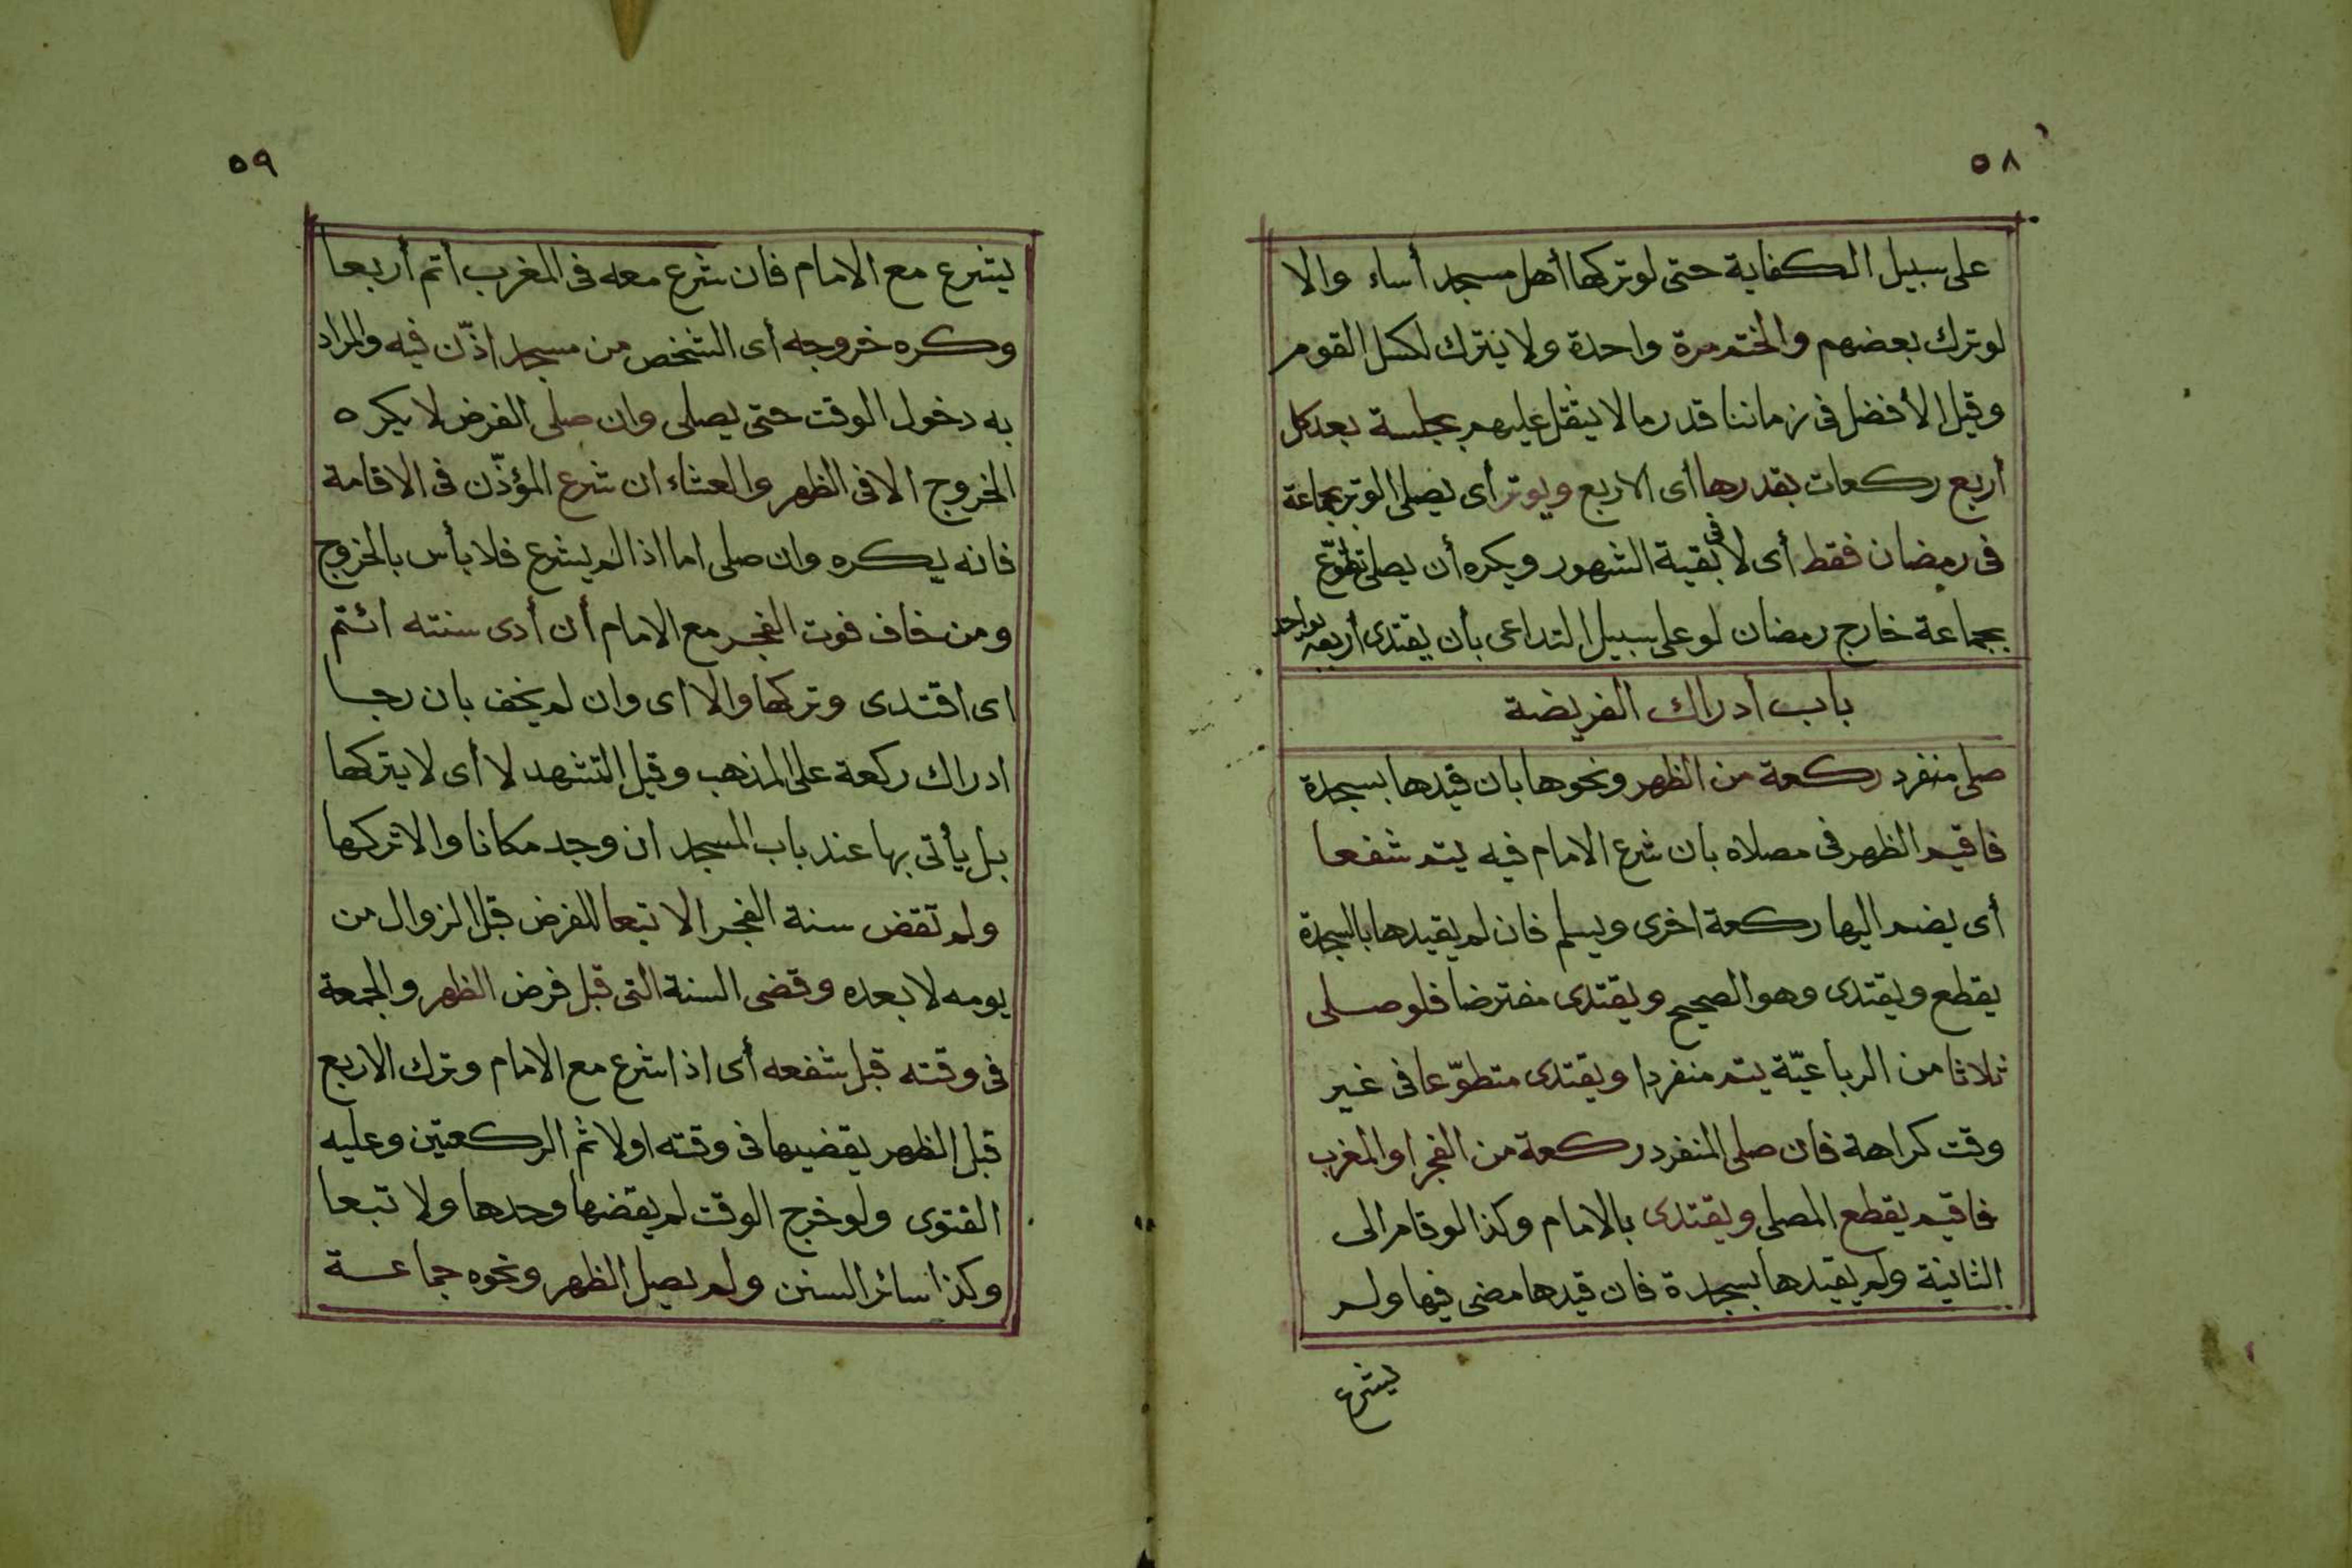 ٥٨
على سبيل الكفاية حتى لو تركها أهل مسجد أساء والا
لو ترك بعضهم والختم مرة واحدة ولا يترك لكسل القوم
وقيل الأفضل فى زماننا قدر ما لا يثقل عليهم بجلسة بعد كل
أربع ركعات بقدرها أى الاربع ويوتر أى يصلى الوتر بجماعة
فى رمضان فقط أى لا فى بقية الشهور ويكره أن يصلى تطوّع
بجماعة خارج رمضان لو على سبيل التداعى بأن يقتدى أربعة بواحد
باب ادراك الفريضة
صلى منفرد ركعة من الظهر ونحوها بان قيدها بسجدة
فاقيم الظهر فى مصلاه بان شرع الامام فيه يتم شفعا
أى يضم اليها ركعة اخرى ويسلم فان لم يقيدها بالسجدة
يقطع ويقتدى وهو الصحيح ويقتدى مفترضا فلو صلى
ثلاثا من الرباعيّة يتم منفردا ويقتدى متطوّعا فى غير
وقت كراهة فان صلى المنفرد ركعة من الفجر او المغرب
فاقيم يقطع المصلى ويقتدى بالامام وكذا لو قام الى
الثانية ولم يقيدها بسجدة فان قيدها مضى فيها ولم
يشرع
٥٩
يشرع مع الامام فان شرع معه فى المغرب أتم أربعا
وكره خروجه أى الشخص من مسجد اذّن فيه والمراد
به دخول الوقت حتى يصلى وان صلى الفرض لا يكره
الخروج الا فى الظهر والعشاء ان شرع المؤذّن فى الاقامة
فانه يكره وان صلى اما اذا لم يشرع فلا بأس بالخروج
ومن خاف فوت الفجر مع الامام أن أدى سنته ائتم
اى اقتدى وتركها والا اى وان لم يخف بان رجا
ادراك ركعة على المذهب وقيل التشهد لا أى لا يتركها
بل يأتى بها عند باب المسجد ان وجد مكانا والا تركها
ولم تقض سنة الفجر الا تبعا للفرض قبل الزوال من
يومه لا بعده وقضى السنة التى قبل فرض الظهر والجمعة
فى وقته قبل شفعه أى اذا شرع مع الامام وترك الاربع
قبل الظهر يقضيها فى وقته اولا ثم الركعتين وعليه
الفتوى ولو خرج الوقت لم يقضها وحدها ولا تبعا
وكذا سائر السنن ولم يصل الظهر ونحوه جماعة